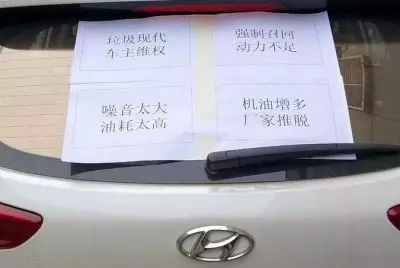 垃圾现代
车主维权
强制召回
动力不足
噪音太大
油耗太高
机油增多
厂家推脱